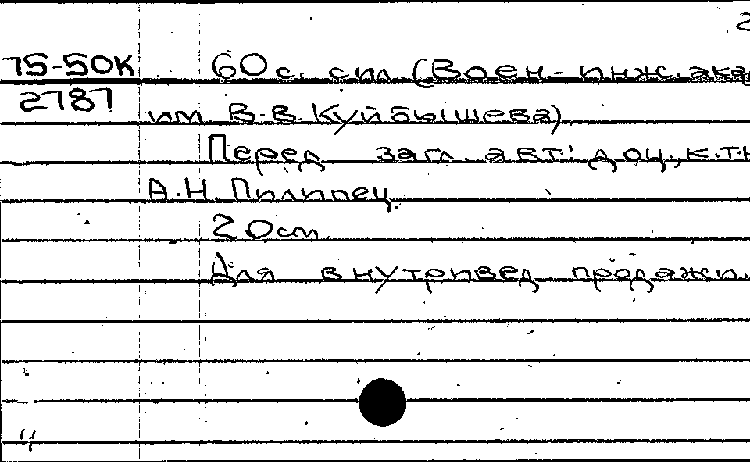 2
75-50К 60 с. с ил. (Воен.-инж. ака
2787 им. В.В. Куйбышева).
Перед загл. авт.: доц., к.т.н
А.Н. Пилипец.
20 см.
Для внутривед. продажи.
4